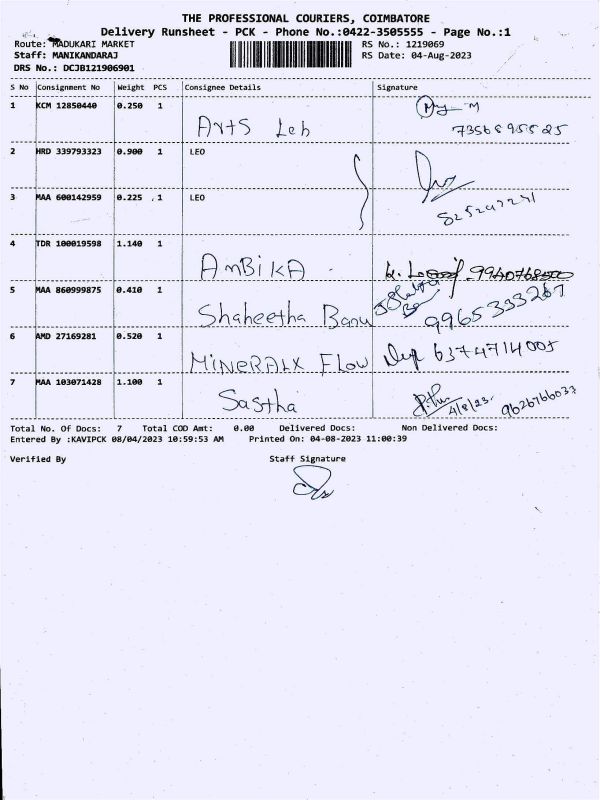 THE PROFESSIONAL COURIERS, COIMBATORE
Delivery Runsheet - PCK - Phone No.:0422-3505555 - Page No.:1
Route: MADUKARI MARKET RS No.: 1219069
Staff: MANIKANDARAJ RS Date: 04-Aug-2023
DRS No.: DCJB121906901
S No Consignment No Weight PCS Consignee Details Signature
1 KCM 12850440 0.250 1
Arts Leh
2 HRD 339793323 0.900 1 LEO
3 MAA 600142959 0.225 1 LEO
4 TDR 100019598 1.140 1
AMBIKA
5 MAA 860999875 0.410 1
Shaheetha Banu 9965333267
6 AMD 27169281 0.520 1
MINERALX FLOW 6374714005
7 MAA 103071428 1.100 1
Sastha 4/8/23. 9626766033
Total No. Of Docs: 7 Total COD Amt: 0.00 Delivered Docs: Non Delivered Docs:
Entered By :KAVIPCK 08/04/2023 10:59:53 AM Printed On: 04-08-2023 11:00:39
Verified By Staff Signature